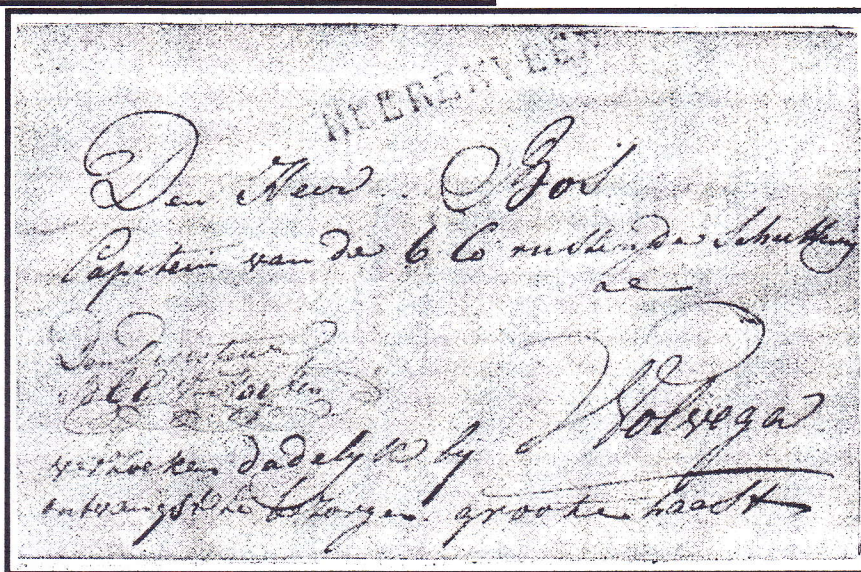 HEERENVEEN
Den Heer Bos
Capitein van de 6 Co rustende Schuttery
te
Wolvega
verzoeken dadelyk by
ontvangst te bezorgen groote haast